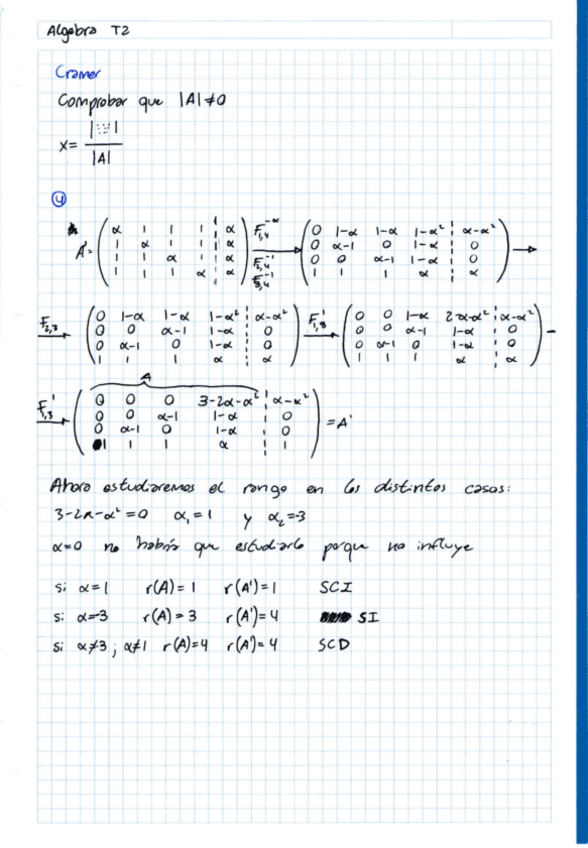 Algebra T2
Cramer
Comprobar que |A|≠0
x= |∷| / |A|
4
A'= ( α 1 1 1 | α ) F₁,₄^-α ( 0 1-α 1-α 1-α² | α-α² )
( 1 α 1 1 | α ) ( 0 α-1 0 1-α | 0 )
( 1 1 α 1 | α ) F₂,₄^-1 ( 0 0 α-1 1-α | 0 )
( 1 1 1 α | α ) F₃,₄^-1 ( 1 1 1 α | α )
F₂,₃ ( 0 1-α 1-α 1-α² | α-α² ) F₁,₃^1 ( 0 0 1-α 2-α-α² | α-α² )
( 0 0 α-1 1-α | 0 ) ( 0 0 α-1 1-α | 0 )
( 0 α-1 0 1-α | 0 ) ( 0 α-1 0 1-α | 0 )
( 1 1 1 α | α ) ( 1 1 1 α | α )
A
F₁,₃^1 ( 0 0 0 3-2α-α² | α-α² )
( 0 0 α-1 1-α | 0 ) = A'
( 0 α-1 0 1-α | 0 )
( 1 1 1 α | 1 )
Ahora estudiaremos el rango en los distintos casos:
3-2α-α²=0 α₁=1 y α₂=-3
α=0 no habría que estudiarlo porque no influye
si α=1 r(A)=1 r(A')=1 SCI
si α=-3 r(A)=3 r(A')=4 SI
si α≠3; α≠1 r(A)=4 r(A')=4 SCD